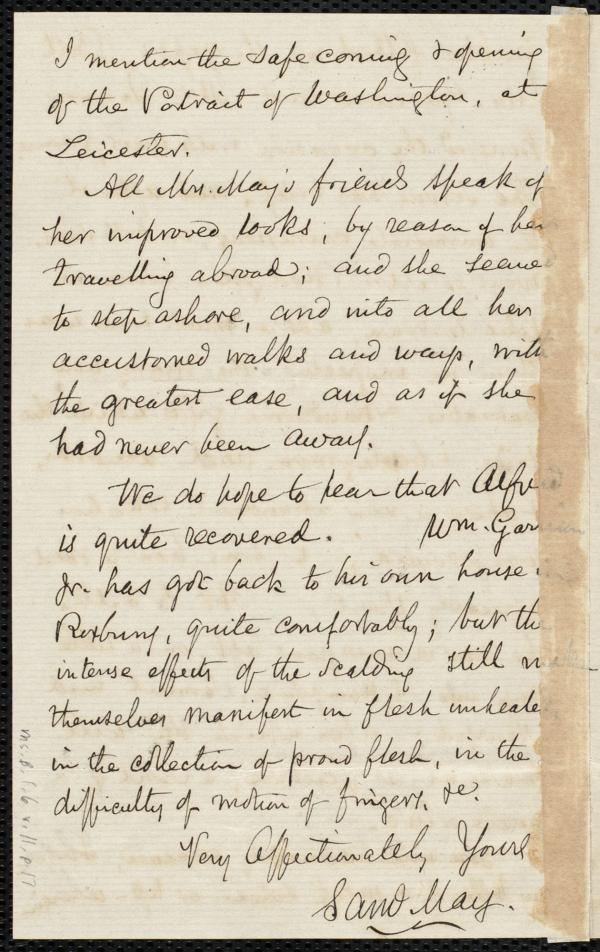 I mention the safe coming & opening
of the Portrait of Washington, at
Leicester.
All Mrs. May's friends speak of
her improved looks, by reason of her
travelling abroad; and she seems
to step ashore, and into all her
accustomed walks and ways, with
the greatest ease, and as if she
had never been away.
We do hope to hear that Alfred
is quite recovered. Wm. Garrison
Jr. has got back to his own house in
Roxbury, quite comfortably; but the
intense effects of the scalding still make
themselves manifest in flesh unhealed
in the collection of proud flesh, in the
difficulty of motion of fingers. &c.
Very Affectionately Yours
Saml. May.